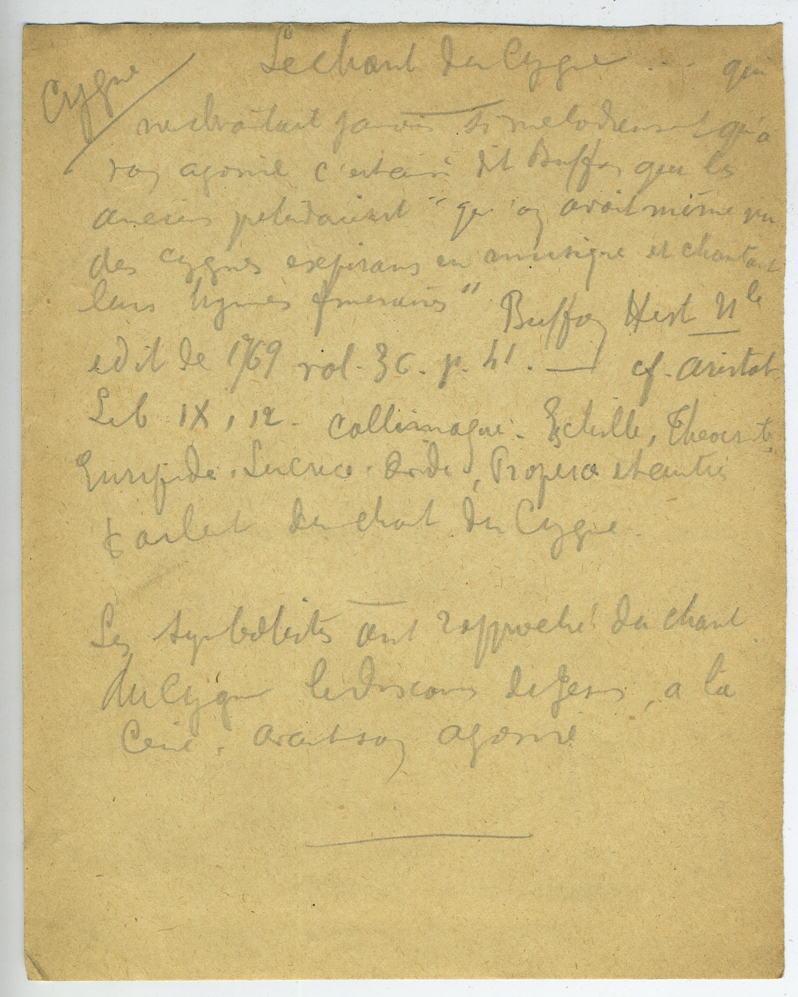 Cygne
Le chant du Cygne ... qui
ne chantait jamais si melodieusement qu'a
son agonie c'est ainsi dit Buffon que les
anciens pretendaient "qu'on avait même vu
des cygnes expirans en musique et chantant
leurs hymnes funeraires" Buffon Hist Nle
edit de 1769 vol. 36. p. 41. — cf. Aristot
Lib IX, 12. Callimaque. Eschille, Theocrite
Euripide. Lucrece. Ovide, Properce et autres
parlent du chant du Cygne.
Les symbolistes ont rapproché du chant
du Cygne le discours de Jesus, a la
Cene, avant son agonie